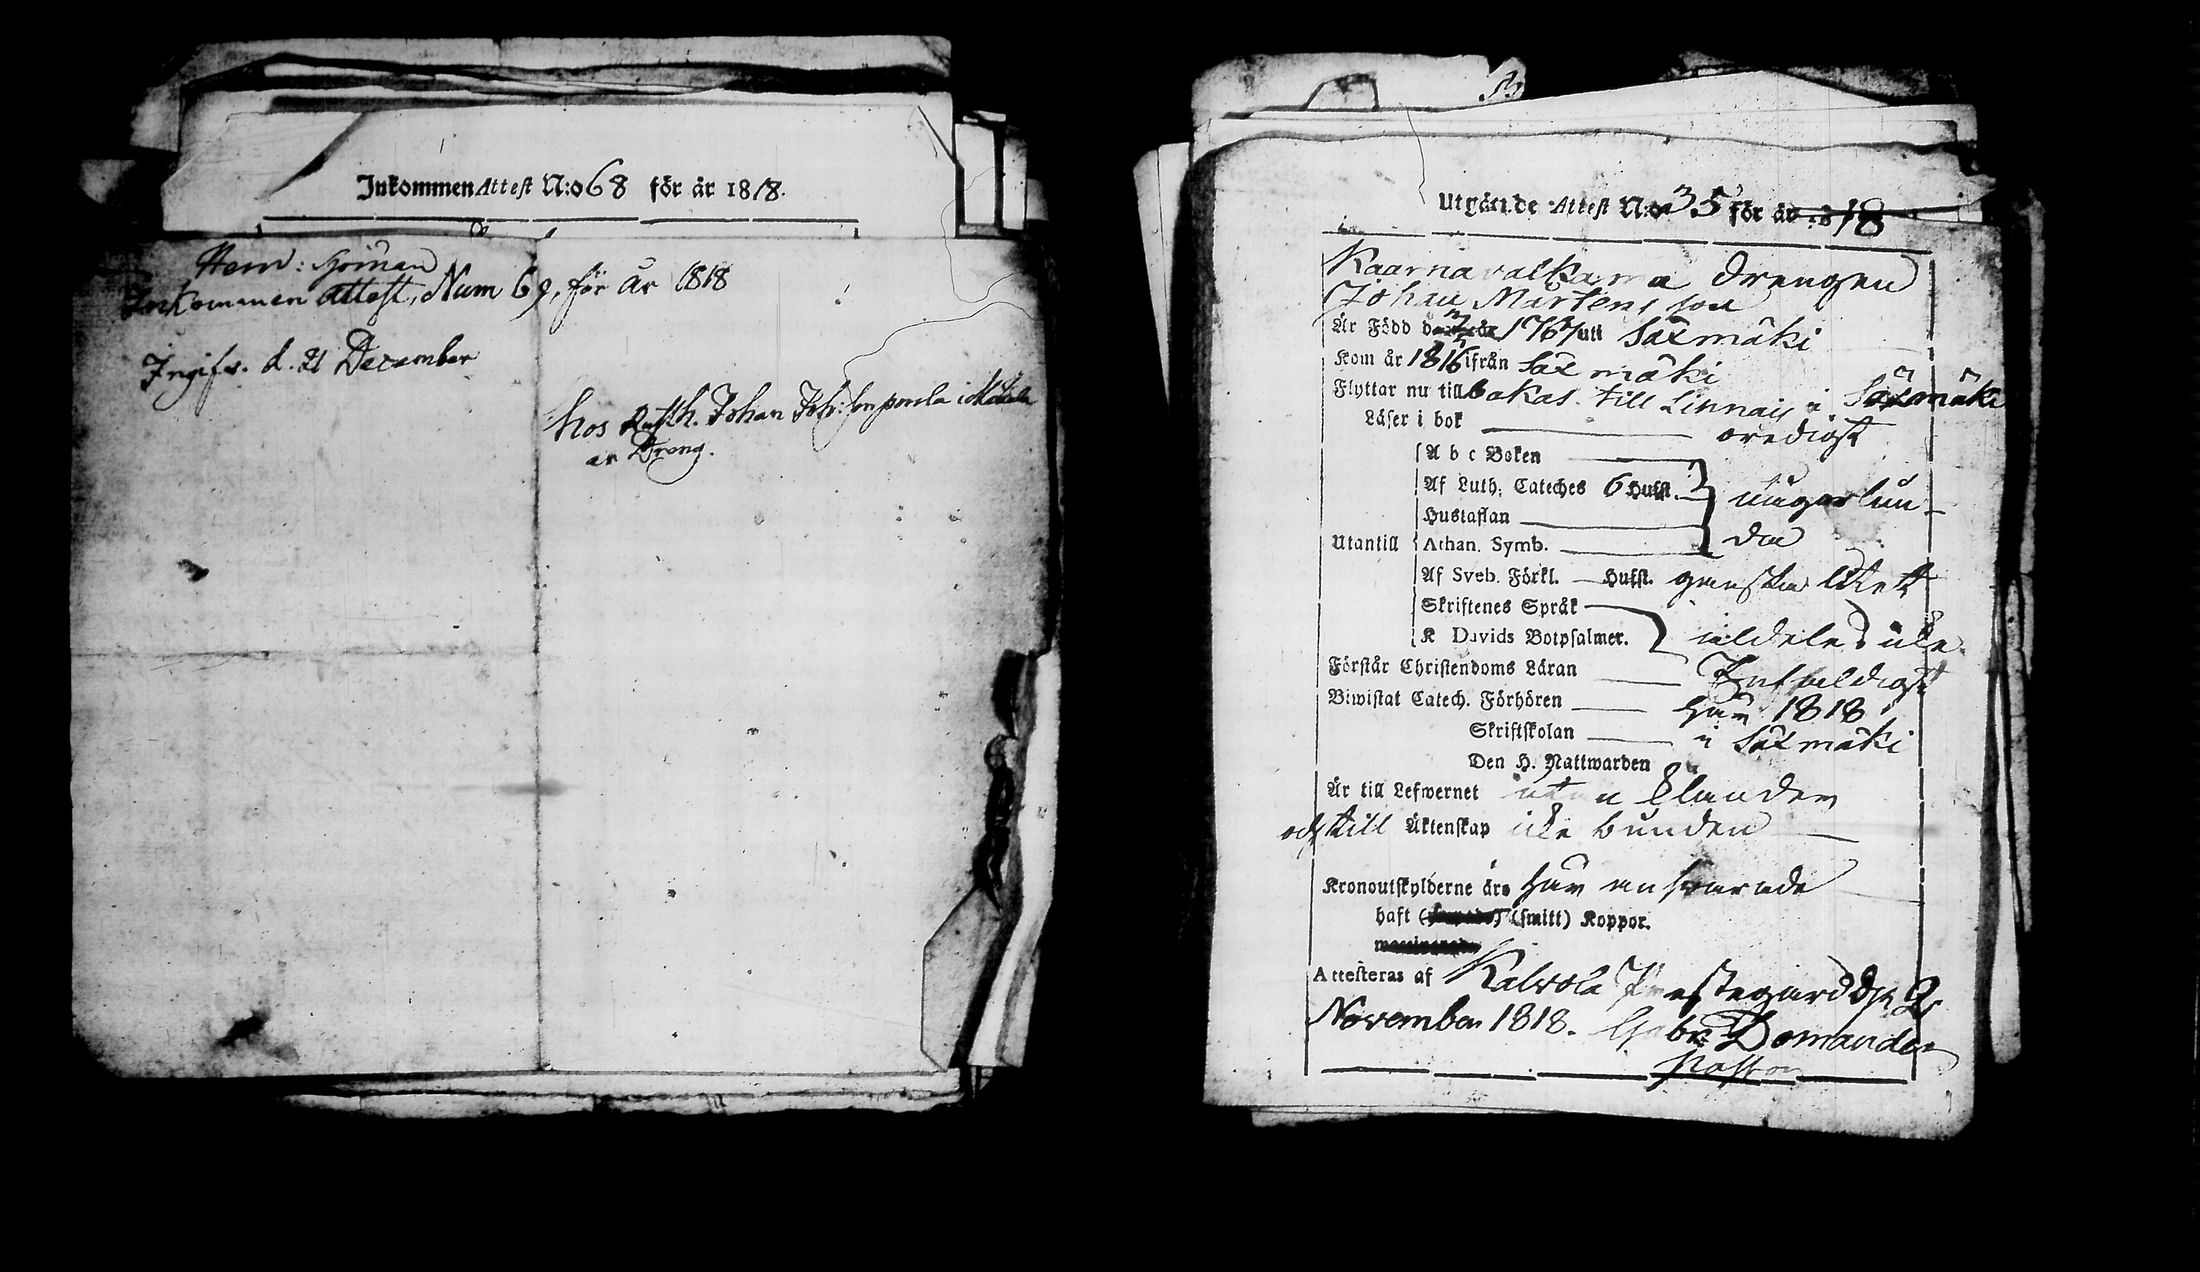 Inkommen Attest N:o 68 för år 1818.
Herr: Hörnan
Inkommen Attest, Num 69, för År 1818
Ingifv. d. 21 December
hos Rusth. Johan Joh:son
är Dreng.
Utgående Attest N:o 35 för år 1818
Kaarnavalkama Drengen
Johan Mårtensson
Är Född d 1767 uti Säxmäki
Kom år 1816 ifrån Säxmäki
Flyttar nu till bakas till Linnais i Säxmäki
Läser i bok oredigt
A b c Boken
Af Luth. Cateches 6 Hufst. någorlun-
Hustaflan
Utantill Athan. Symb. da
Af Sveb. Förkl. Hufst. ganska litet
Skriftenes Språk
K Davids Botpsalmer. aldeles icke
Förstår Christendoms Läran Enfaldigt
Biwistat Catech. Förhören här 1818
Skriftskolan i Säxmäki
Den H. Nattwarden
Är till Lefwernet utan klander
och till Äktenskap icke bunden
Kronoutskylderne äro här ansvarade
haft (smitt) Koppor.
Attesteras af Kalvola Prestegård d. 2
November 1818. Gabr. Domander
Pastor